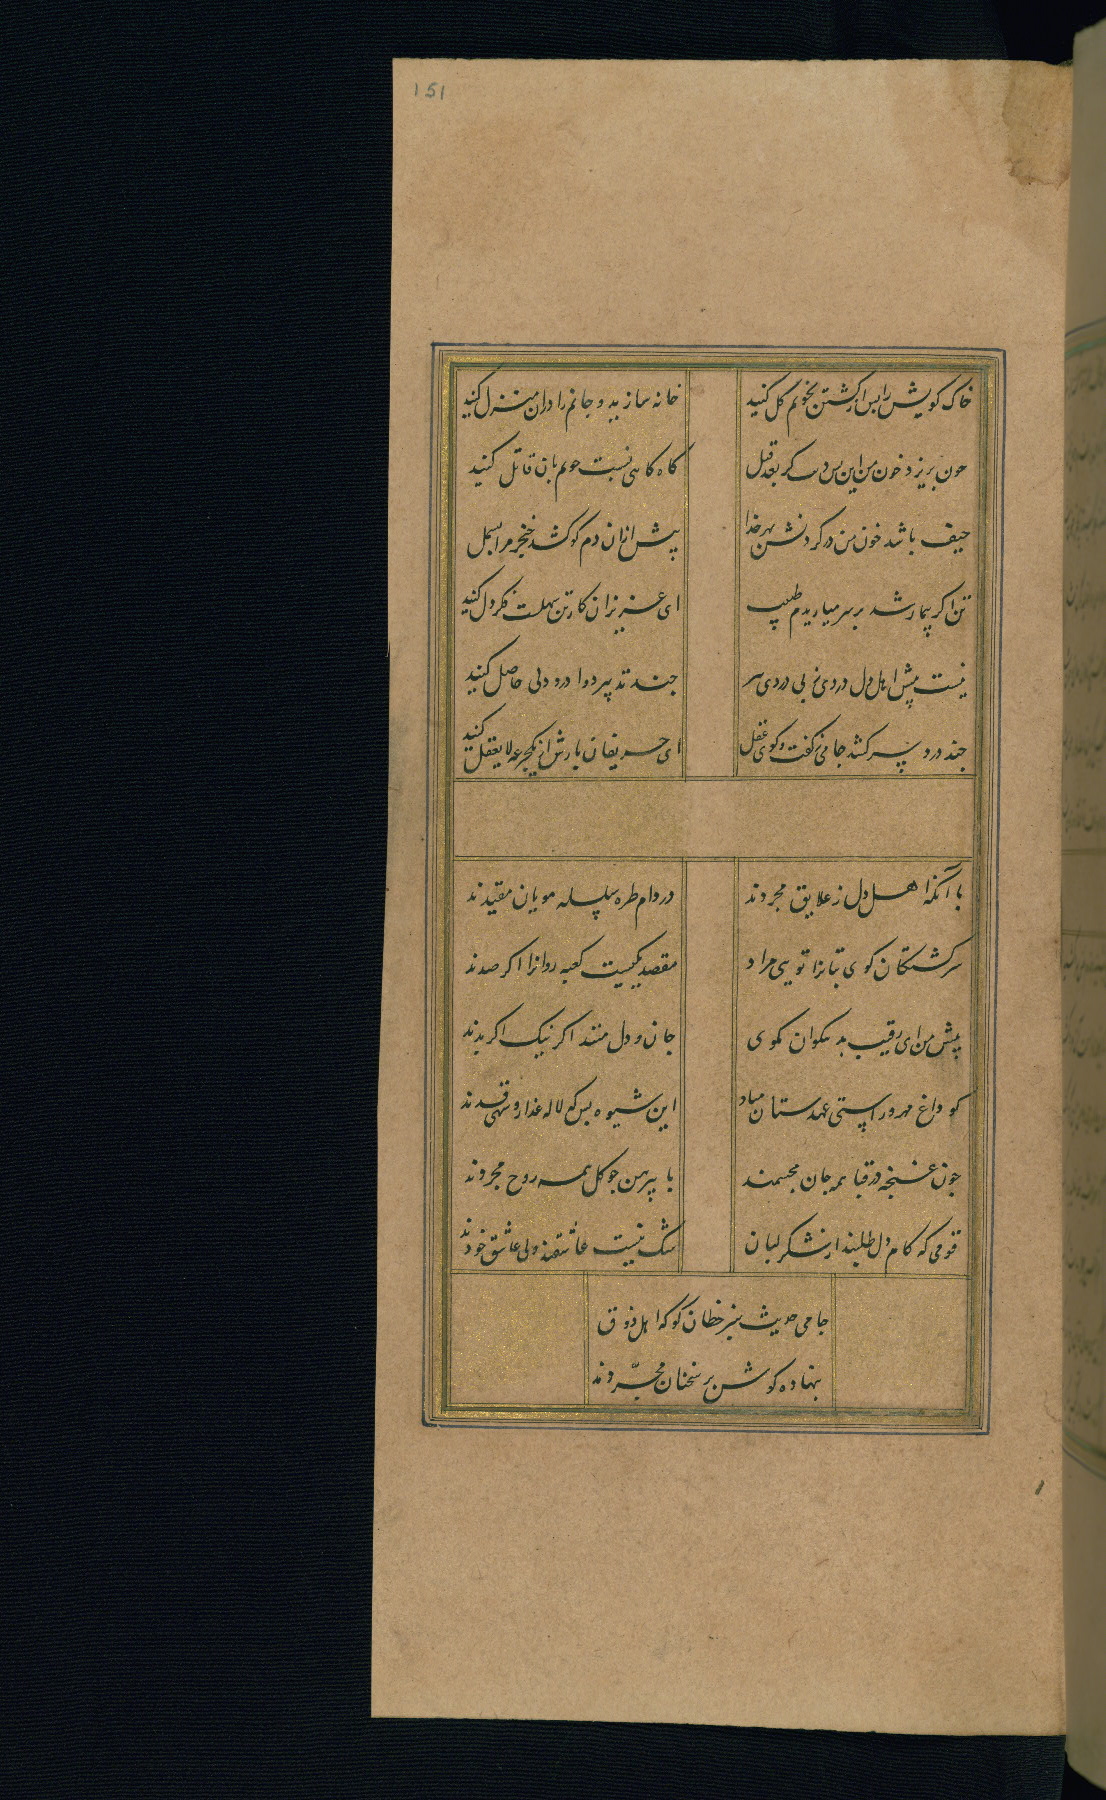 151
خاک کویش را پس از کشتن بخونم گل کنید
خانه سازید و جانم را دران منزل کنید
چون بریزد خون من این بس دیت کز بعد قتل
گاه گاهی نسبت خونم بان قاتل کنید
حیف باشد خون من در گردنش بهر خدا
پیش ازان دم کو کشد خنجر مرا بسمل کنید
تن اگر بیمار شد بر سر میاریدم طبیب
ای عزیزان کار تن سهلست فکر دل کنید
نیست پیش اهل دل دردی ز بی دردی بتر
چند تدبیر دوا درد دلی حاصل کنید
چند درد سر کشد جامی ز گفت و گوی عقل
ای حریفان یارش از یک جرعه لایعقل کنید
با آنکه اهل دل ز علایق مجردند
در دام طره سلسله مویان مقیدند
سرگشتگان کوی بتانرا تویی مراد
مقصد یکیست کعبه روانرا اگر صدند
پیش من ای رقیب بد نیکوان مگوی
جان و دل منند اگر نیک اگر بدند
کو داغ مهرور استی عهدستان مباد
این شیوه بس که لاله عذار و سهی قدند
چون غنچه در قبا همه جان مجسمند
با پیرهن چو گل همه روح مجردند
قومی که کام دل طلبند از شکر لبان
شک نیست عاشقند ولی عاشق خودند
جامی حدیث سبز خطان گو که اهل ذوق
بنهاده گوش بر سخنان مجردند